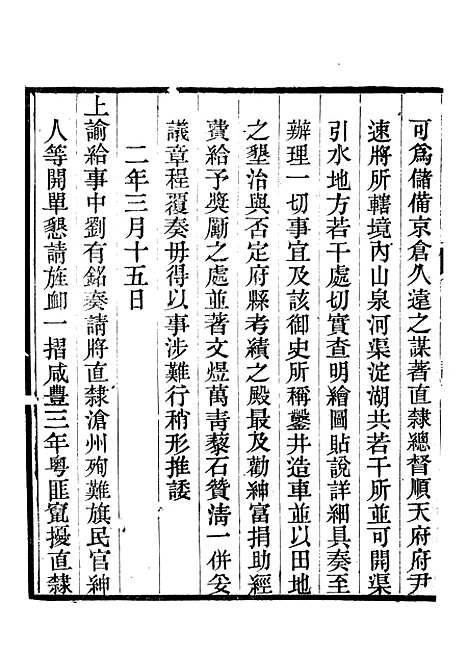 可爲儲備京倉久遠之謀著直隸總督順天府府尹
速將所轄境內山泉河渠淀湖共若干所並可開渠
引水地方若干處切實查明繪圖貼說詳細具奏至
辦理一切事宜及該御史所稱鑿井造車並以田地
之墾治與否定府縣考績之殿最及勸紳富捐助經
費給予奬勵之處並著文煜萬靑藜石贊淸一併妥
議章程覆奏毋得以事涉難行稍形推諉
二年三月十五日
上諭給事中劉有銘奏請將直隸滄州殉難旗民官紳
人等開單懇請旌卹一摺咸豐三年粵匪竄擾直隸